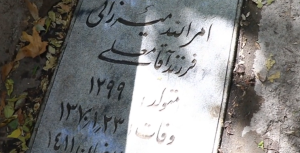 امراله میرزائی
فرزند آقا معلی
متولد: ۱۲۹۹
وفات: ۱۳۷۰/۱/۲۳